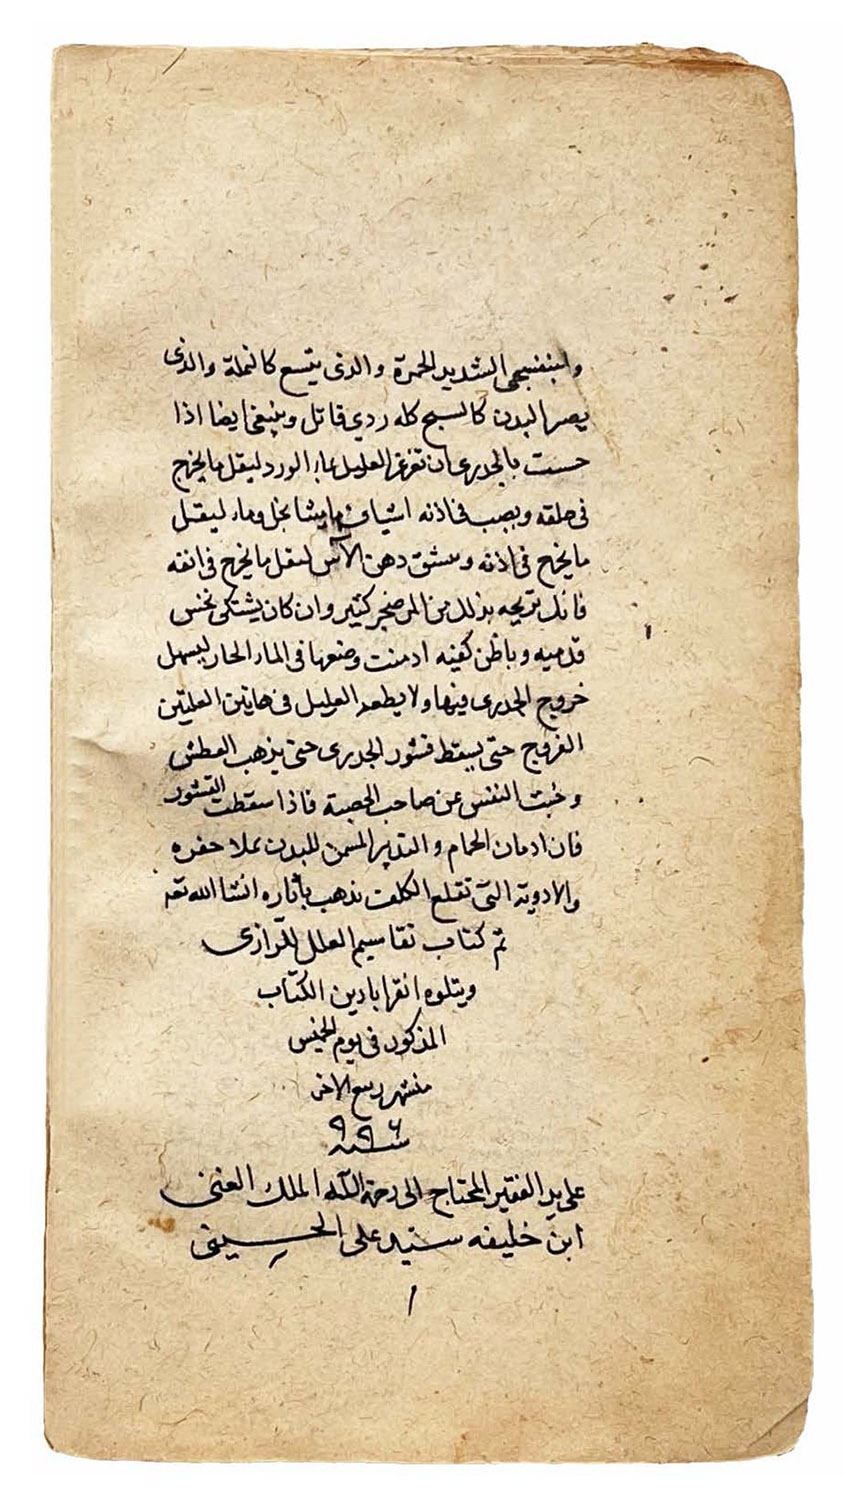 والبنفسجى الشديد الحمرة والذى يتسع كالنملة والذى
يصر البدن كالسبح كله ردي قاتل وينبغى ايضا اذا
حست بالجدرى ان تغرغر العليل بماء الورد ليقل ما يخرج
فى حلقه ويصب فى اذنه اشياف ماميثا بخل وماء ليقل
ما يخرج فى اذنه ويستنشق دهن الآس ليقل ما يخرج فى انفه
فانك تريحه بذلك من كثير وان كان يشتكى نخس
قدميه وباطن كفيه ادمنت وضعها فى الماء الحار ليسهل
خروج الجدرى فيها ولا يطعم العليل فى هاتين العلتين
الفروج حتى يسقط قشور الجدرى حتى يذهب العطش
وخبث النفس عن صاحب الحصبة فاذا سقطت القشور
فان ادمان الحمام والتدبير المسمن للبدن يملا حفره
والادوية التى تقلع الكلف يذهب بأثاره انشا الله تعه
تم كتاب تقاسيم العلل للرازى
ويتلوه انقرابادين الكتاب
المذكور فى يوم الخميس
منشهر ربيع الاخر
سنه ٩٩٦
على يد الفقير المحتاج الى رحمة الله الملك الغنى
ابن خليفه سيد على الحسينى